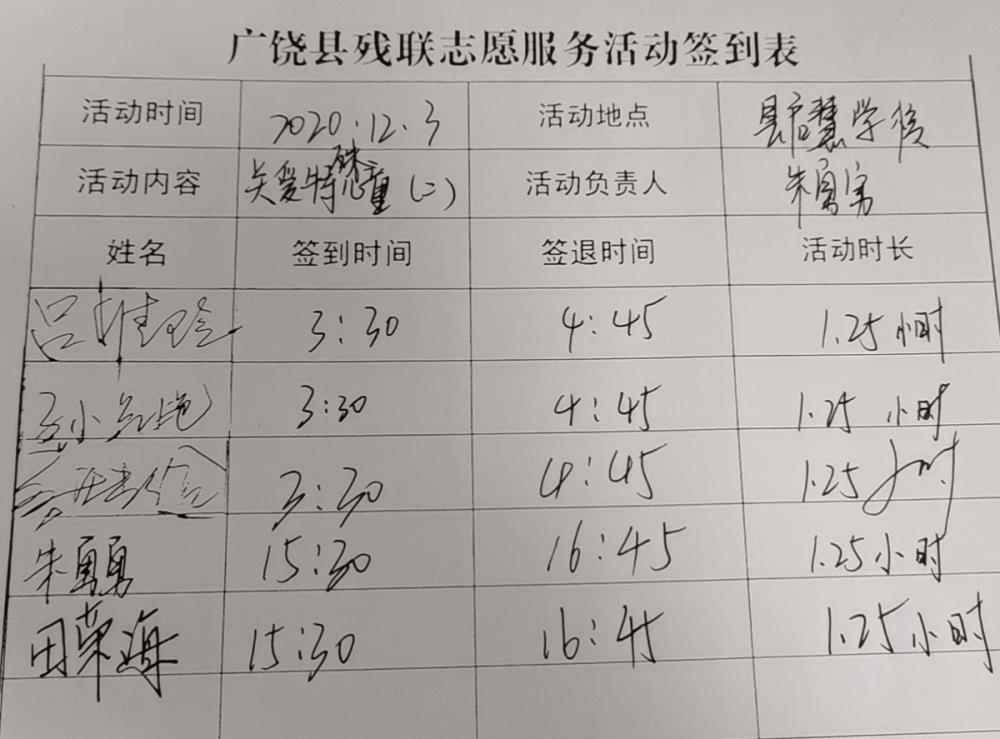 广饶县残联志愿服务活动签到表
活动时间 2020.12.3 活动地点 县启慧学校
活动内容 关爱特殊儿童(二) 活动负责人 朱勇勇
姓名 签到时间 签退时间 活动时长
吕 3:30 4:45 1.25小时
小 3:30 4:45 1.25小时
3:30 4:45 1.25小时
朱勇勇 15:30 16:45 1.25小时
田荣海 15:30 16:45 1.25小时